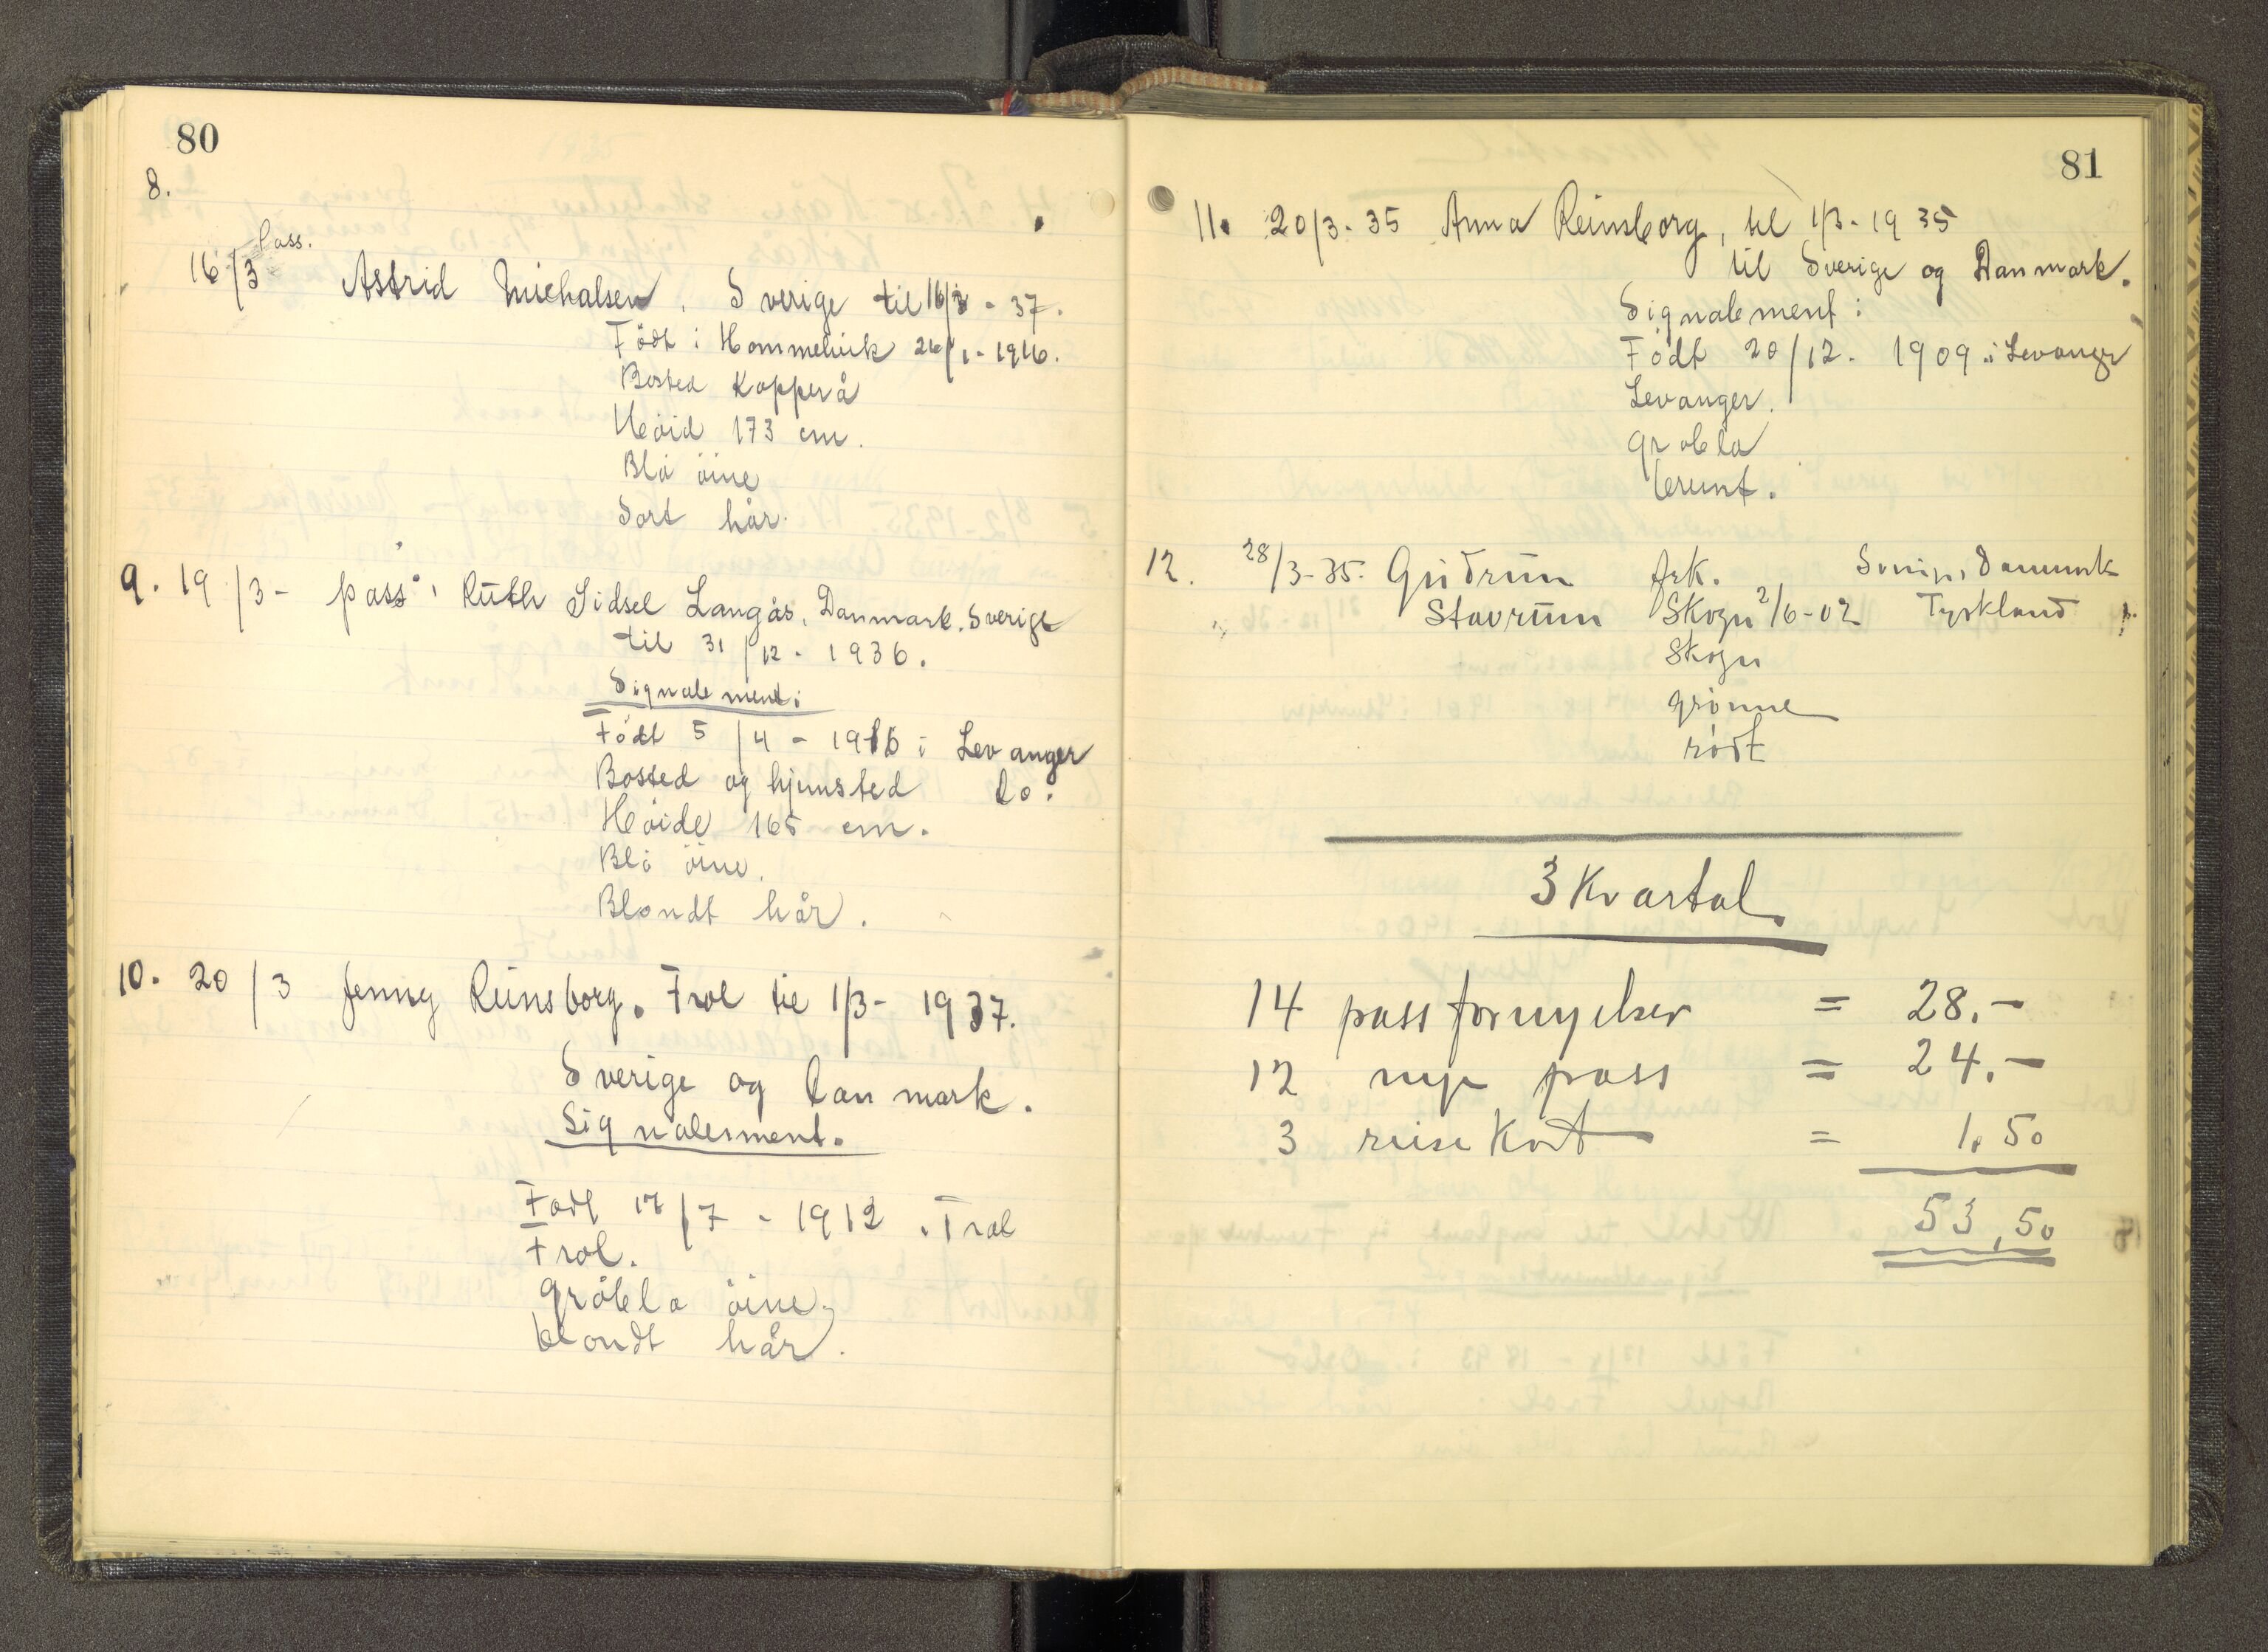 80
8.
Pass.
16/3 Astrid Michalsen, Sverige til 16/3 - 37.
Født i Hommelvik 26/1 - 1916.
Bosted Kopperå
Høid 173 cm.
Blå øine
Sort hår.
9. 19/3 - pass, Ruth Sidsel Langås, Danmark, Sverige
til 31/12 - 1936.
Signalement:
Født 5/4 - 1916 i Levanger
Bosted og hjemsted do.
Høide 165 cm.
Blå øine.
Blondt hår.
10. 20/3 Jenny Reinsborg. Frol til 1/3 - 1937.
Sverige og Danmark.
Signalement.
Født 17/7 - 1912 i Frol
Frol.
gråblå øine,
blondt hår.
81
11. 20/3 - 35 Anna Reinsborg, til 1/3 - 1935
til Sverige og Danmark.
Signalement:
Født 20/12 - 1909 i Levanger
Levanger.
gråblå
brunt.
12. 28/3 - 35. Gudrun frk. Sverige, Danmark
Stavrum Skogn 2/6 - 02 Tyskland
Skogn
grønne
rødt
3 Kvartal.
14 passfornyelser = 28.-
12 nye pass = 24.-
3 reisekort = 1.50
53,50